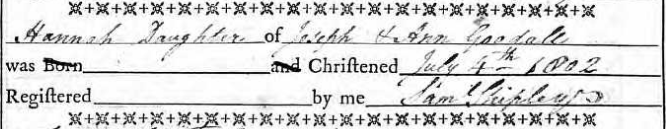 Hannah Daughter of Joseph & Ann Goodall
was Born and Chriſtened July 4th 1802
Registered by me Saml Shipley